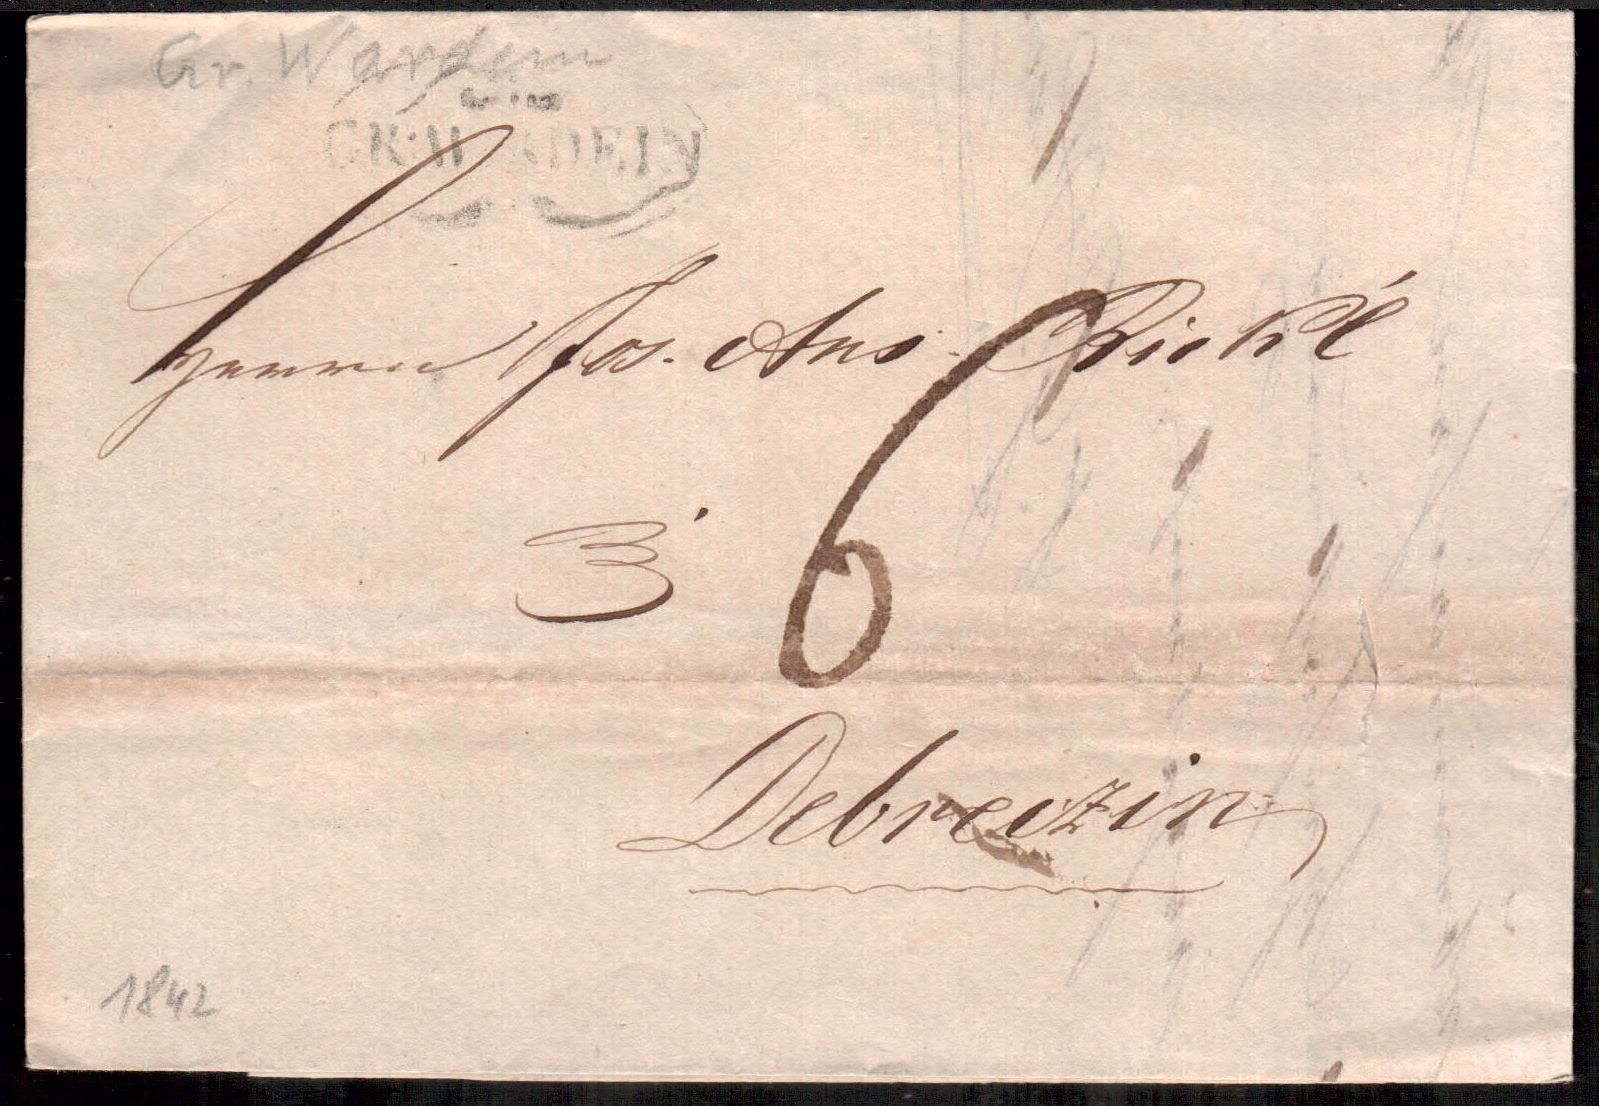 Gr. Wardein
GR: WARDEIN
Herrn Jos. Ans. Rickl
3 6
Debreczin
1842